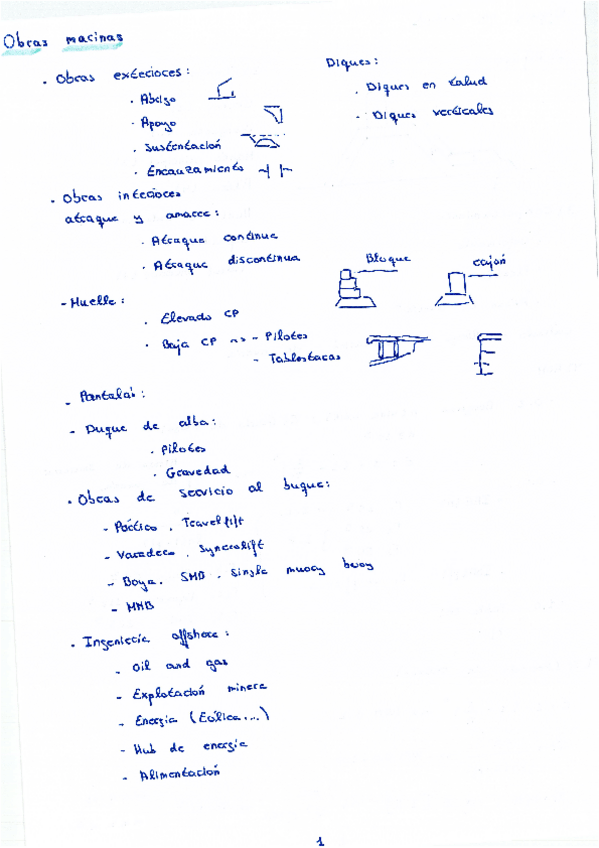 Obras marinas
· Obras exteriores:
· Abrigo
· Apoyo
· Sustentación
· Encauzamiento
Diques:
· Diques en talud
- Diques verticales
· Obras interiores
atraque y amarre:
· Atraque continua
· Atraque discontinua
Bloque
cajón
- Muelle:
· Elevado CP
· Baja CP => - Pilotes
- Tablestacas
- Pantalán:
- Duque de alba:
· Pilotes
· Gravedad
· Obras de servicio al buque:
- Pórtico. Travel lift
- Varadero. Syncrolift
- Boya. SMB. Single muory buoy
- MMB
· Ingeniería offshore:
- Oil and gas
- Explotación minera
- Energía (Eólica...)
- Hub de energía
- Alimentación
1